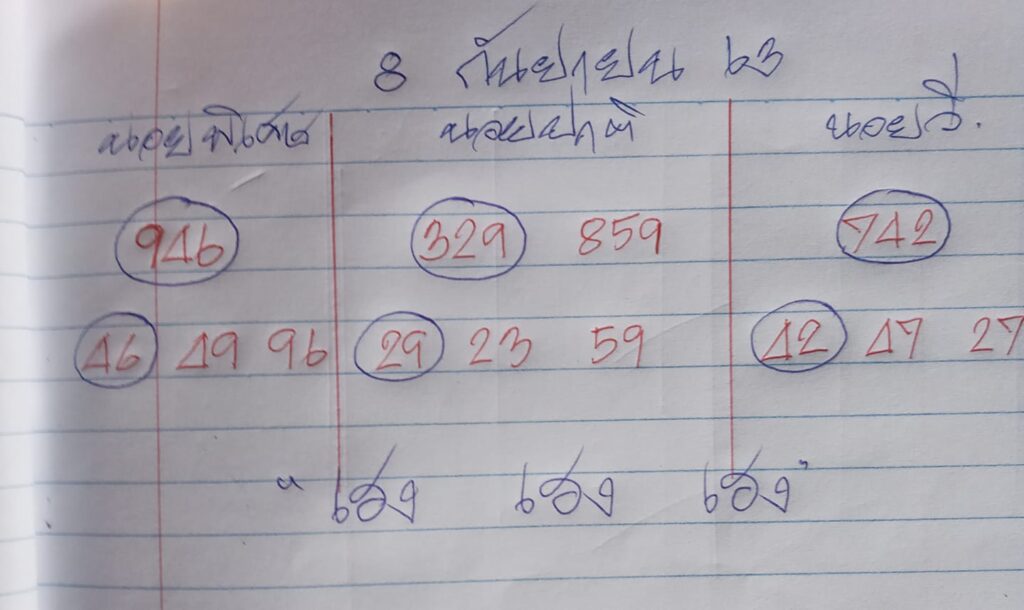 8 กันยายน 63
นอยพิเศษ นอยปกติ นอยวี.
946 329 859 742
46 49 96 29 23 59 42 47 27
“ เฮง เฮง เฮง ”